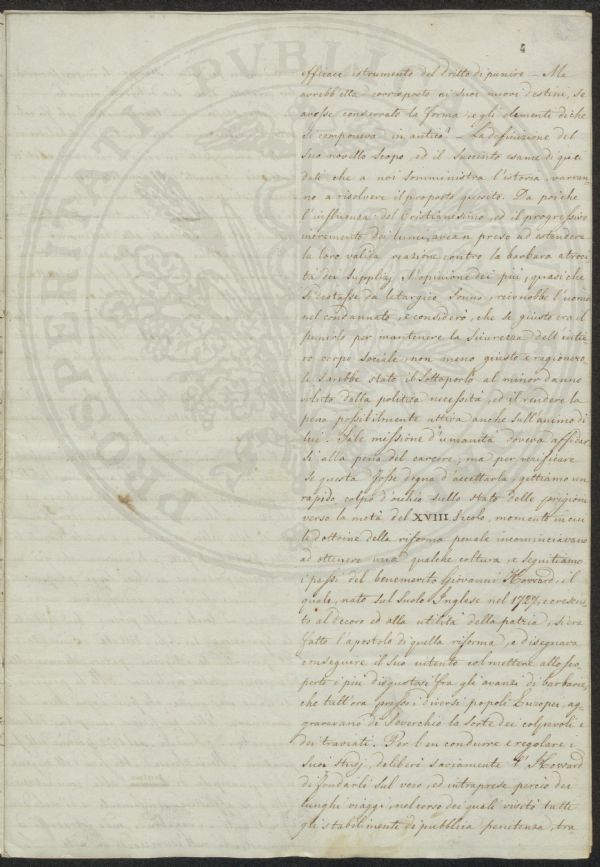 4
efficace istrumento del dritto di punire — Ma
avrebb'etta corrisposto ai suoi nuovi destini, se
avesse conservato la forma, e gli elementi di che
si componeva in antico? — La definizione del
suo novello scopo, ed il succinto esame di que'
dati che a noi somministra l'istoria, varran-
no a risolvere il proposto quesito. Da poichè
l'influenza del Cristianesimo, ed il progressivo
incremento dei lumi, avean preso ad estendere
la loro valida reazione contro la barbara atroci-
tà dei supplizj, l'opinione dei più, quasi che
si destasse da letargico sonno, riconobbe l'uomo
nel condannato, e considerò, che se giusto era il
punirlo per mantenere la sicurezza dell'intie-
ro corpo sociale, non meno giusto e ragionevo-
le sarebbe stato il sottoporlo al minor danno
voluto dalla politica necessità, ed il rendere la
pena possibilmente attiva anche sull'animo di
lui. Tale missione d'umanità doveva affidar-
si alla pena del carcere; ma per verificare
se questa fosse degna d'accettarla, gettiamo un
rapido colpo d'occhio sullo stato delle prigioni
verso la metà del XVIII secolo, momento in cui
le dottrine della riforma penale incominciavano
ad ottenere una qualche coltura, e seguitiamo
i passi del benemerito Giovanni Howard, il
quale, nato sul suolo Inglese nel 1727, e cresciu-
to al decoro ed alla utilità della patria, si era
fatto l'apostolo di quella riforma, e disegnava
conseguire il suo intento col mettere allo sco-
perto i più disgustosi fra gli avanzi di barbarie,
che tutt'ora presso i diversi popoli Europei, ag-
gravavano di soverchio la sorte dei colpevoli e
dei traviati. Per ben condurre e regolare i
suoi studj, deliberò saviamente l'Howard
di fondarli sul vero, ed intraprese perciò dei
lunghi viaggi, nel corso dei quali visitò tutti
gli stabilimenti di pubblica penitenza, tra
PROSPERITATI PVBLICAE